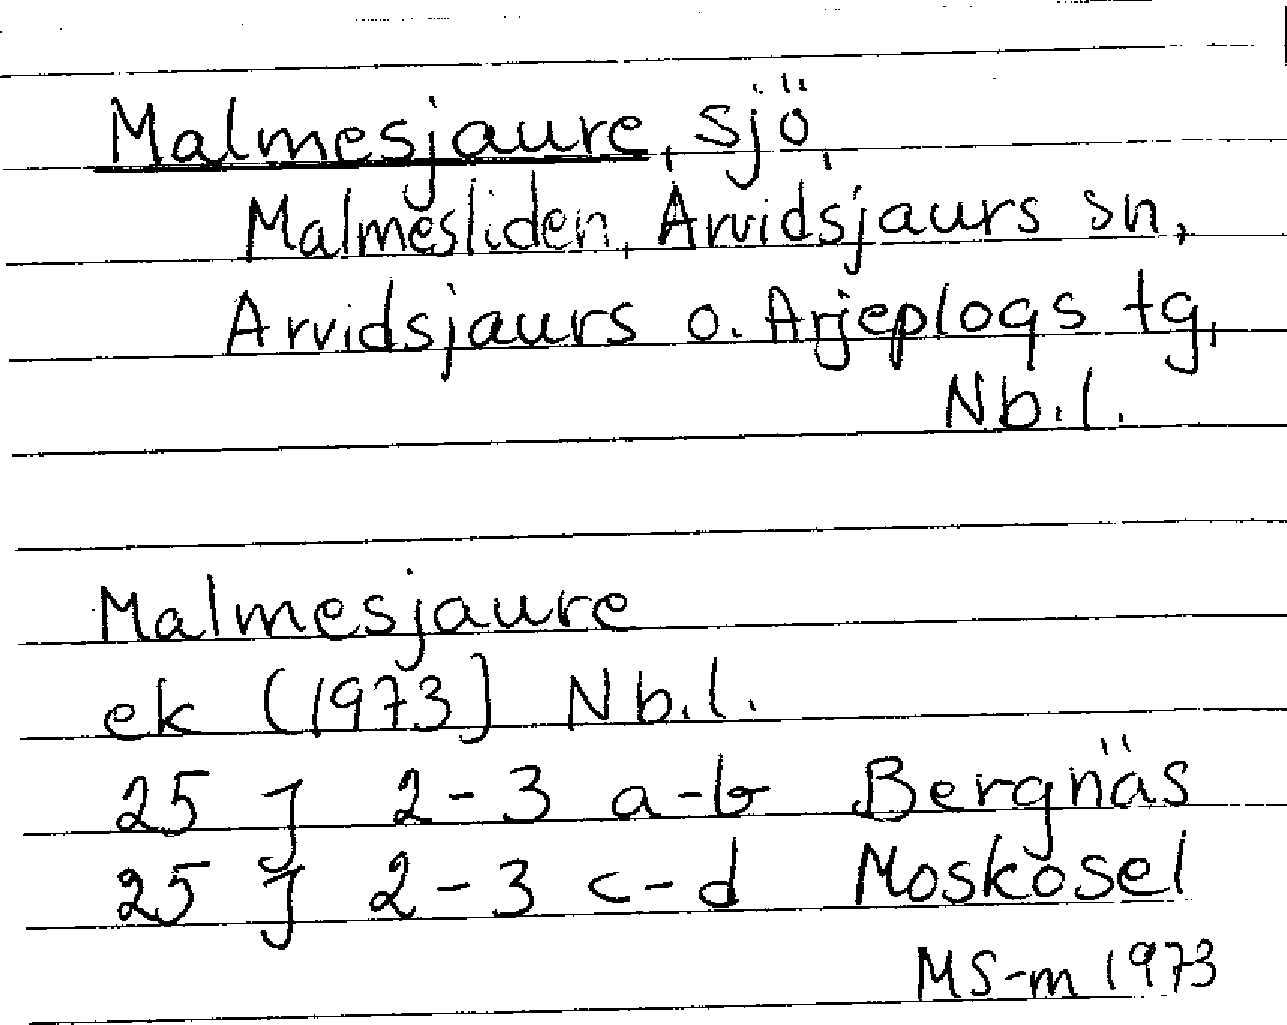 Malmesjaure, sjö,
Malmesliden, Arvidsjaurs sn,
Arvidsjaurs o. Arjeplogs tg,
Nb.l.
Malmesjaure
ek (1973) Nb.l.
25 J 2-3 a-b Bergnäs
25 J 2-3 c-d Moskosel
MS-m 1973